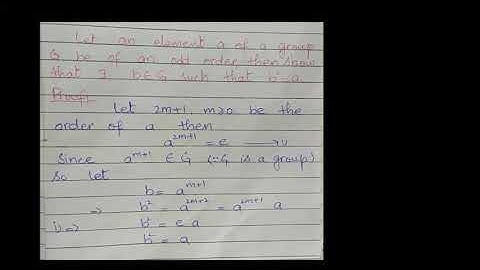 Let an element a of a group
G be of an odd order, then show
that ∃ b∈G such that b²=a.
Proof:
Let 2m+1, m≥0 be the
order of a then
a^{2m+1} = e ⟶ 1)
Since a^{m+1} ∈ G (∵ G is a group)
So let
b = a^{m+1}
⇒ b² = a^{2m+2} = a^{2m+1} a
1) ⇒ b² = e a
b² = a